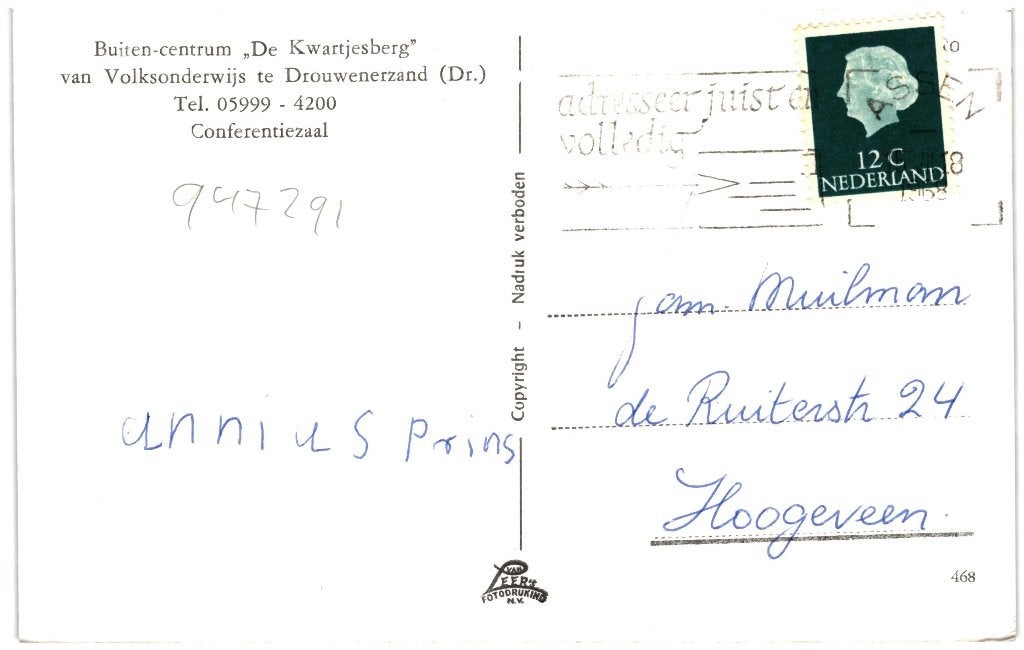 Buiten-centrum „De Kwartjesberg”
van Volksonderwijs te Drouwenerzand (Dr.)
Tel. 05999 - 4200
Conferentiezaal
947291
annius Prins
Copyright - Nadruk verboden
VAN
LEER's
FOTODRUKIND
N.V.
adresseer juist en
volledig
ASSEN
12 C
NEDERLAND
fam. Muilman
de Ruiterstr 24
Hoogeveen.
468